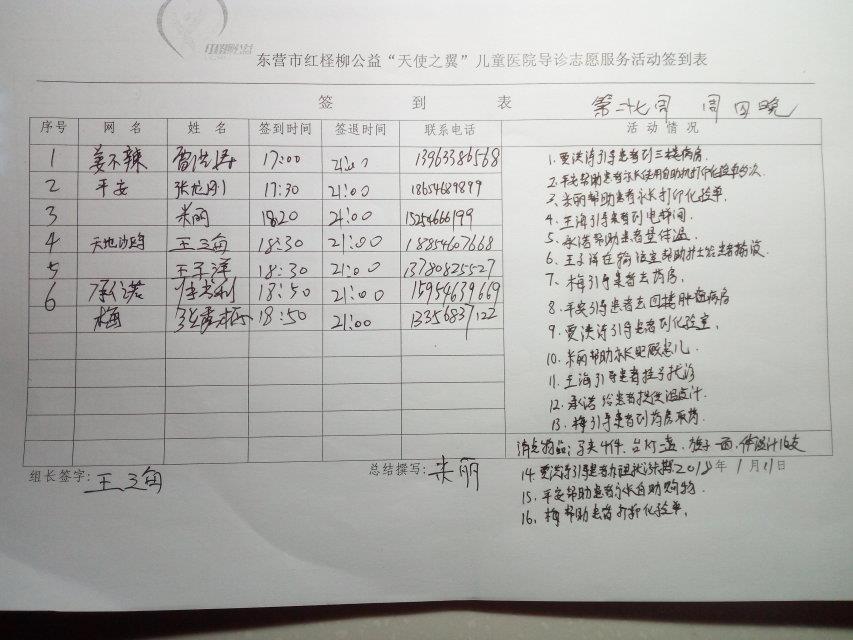 东营市红柽柳公益“天使之翼”儿童医院导诊志愿服务活动签到表
签 到 表 第二十七周 周四晚
序号 网 名 姓 名 签到时间 签退时间 联系电话 活 动 情 况
1 姜不辣 贾洪涛 17:00 21:00 13963386568
2 平安 17:30 21:00 18654689899
3 米丽 18:20 21:00 15254666199
4 天地沙鸥 王海 18:30 21:00 18854607668
5 王子洋 18:30 21:00 13780825527
6 承诺 18:50 21:00 15954639669
梅 18:50 21:00 13356837122
1. 贾洪涛引导患者到三楼病房.
2. 平安帮助患者家长使用自助机打印化验单多次
3. 米丽帮助患者家长打印化验单.
4. 王海引导患者到电梯间.
5. 承诺帮助患者量体温.
6. 王子洋在输液室帮助护士给患者输液
7. 梅引导患者去药房.
8. 平安引导患者去四楼肿瘤病房
9. 贾洪涛引导患者到化验室.
10. 米丽帮助家长照顾患儿.
11. 王海引导患者挂号就诊
12. 承诺给患者提供温度计.
13. 梅引导患者到药房取药.
清点物品: 马夹4件. 台灯一盏. 旗子一面. 体温计16支
组长签字: 王海 总结撰写: 米丽 2018年 1月11日
14. 贾洪涛引导患者
15. 平安帮助患者家长自助购物.
16. 梅帮助患者打印化验单.